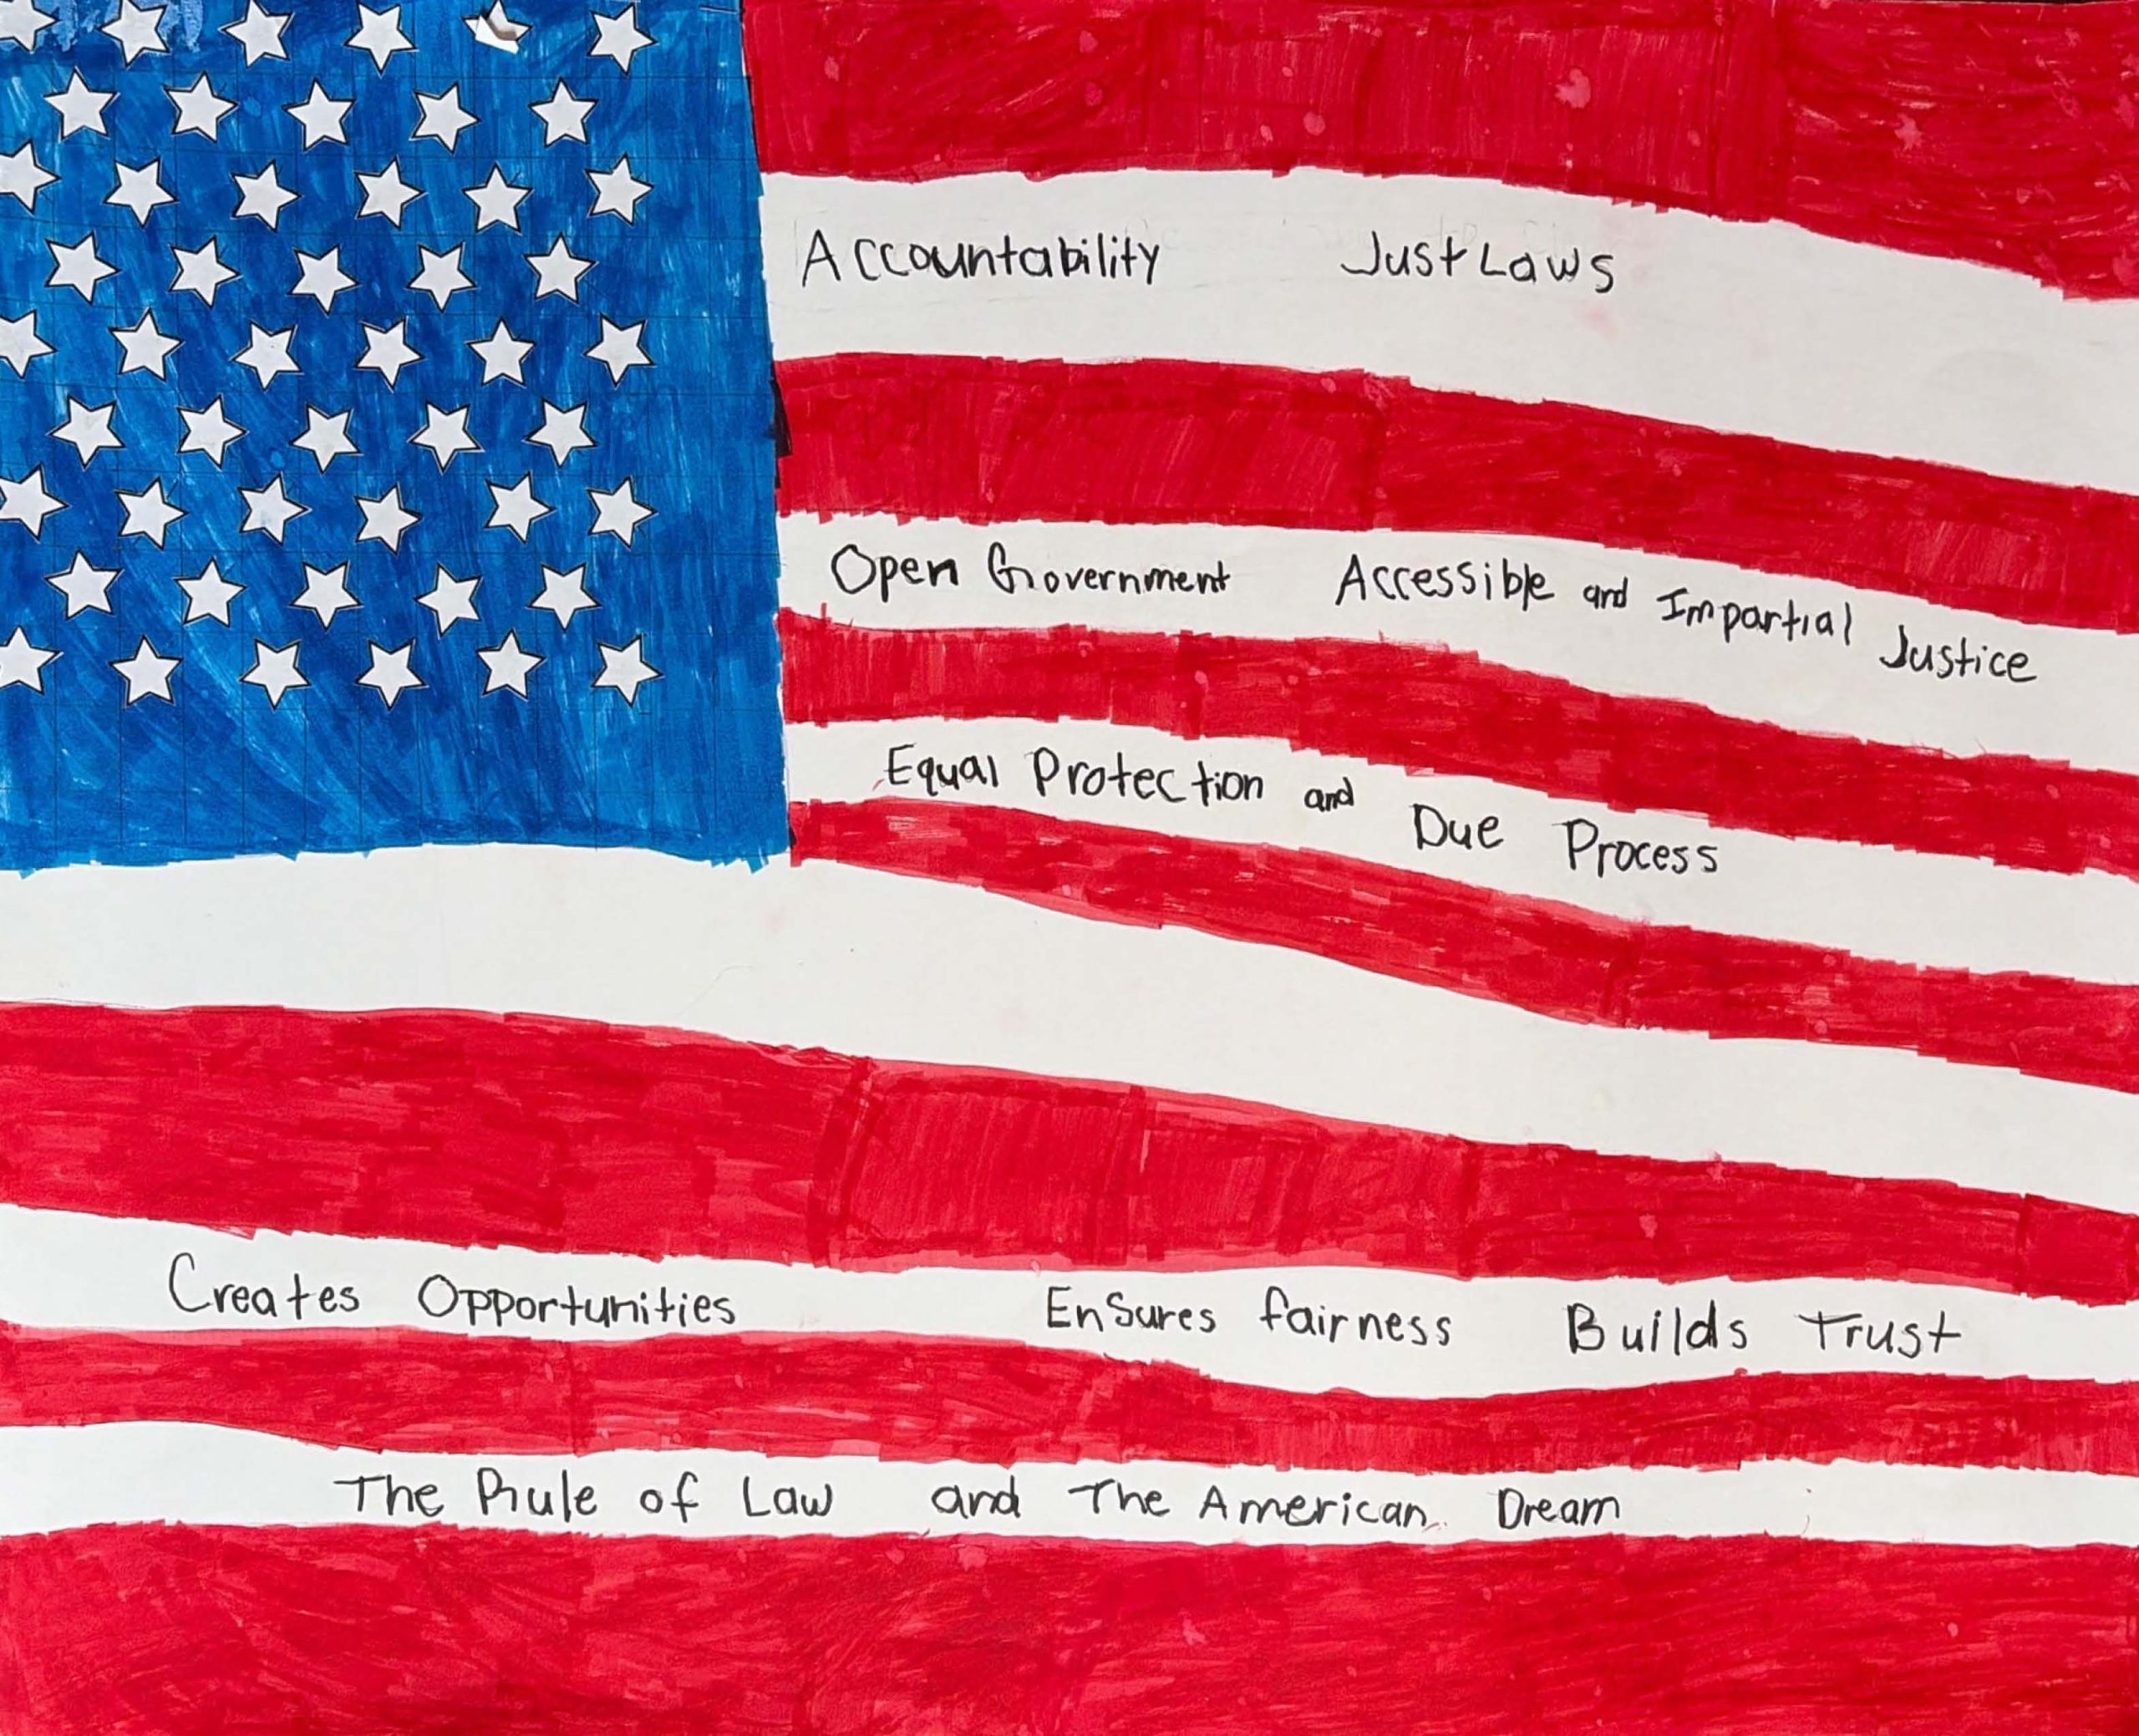 Accountability Just Laws
Open Government Accessible and Impartial Justice
Equal Protection and Due Process
Creates Opportunities Ensures fairness Builds Trust
The Rule of Law and The American Dream